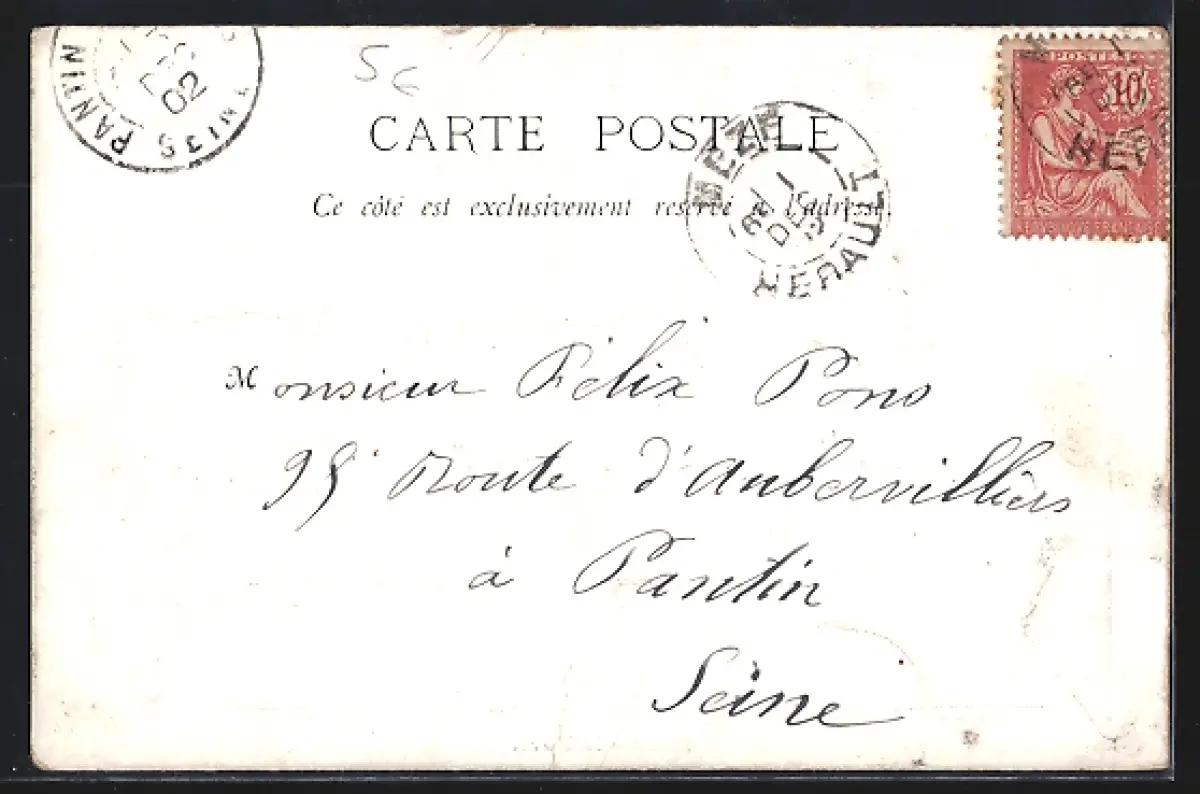 PANTIN SEINE
02
5 c
CARTE POSTALE
Ce côté est exclusivement reservé à l'adresse.
MEZE
1
DEC
HERAULT
POSTES
10
Monsieur Félix Pons
95 Route d'Aubervilliers
à Pantin
Seine